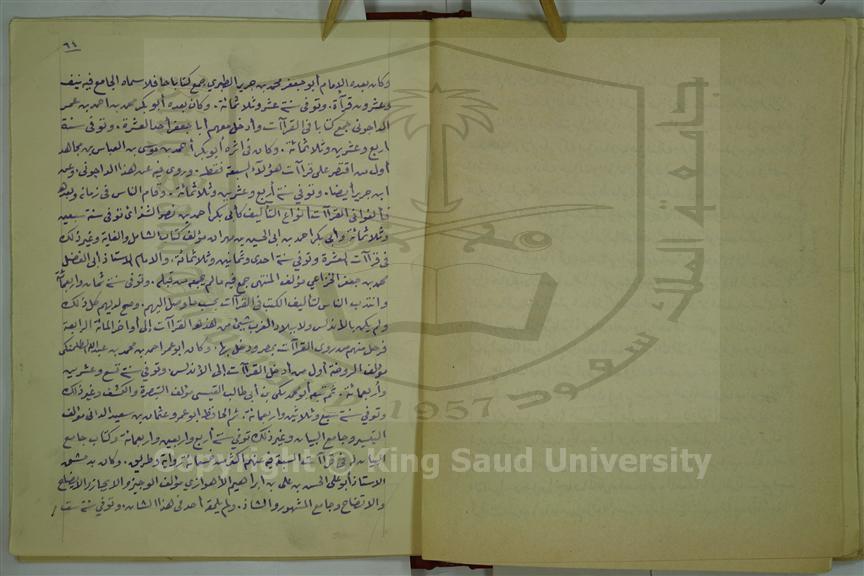 ٦٤
وكان بعده الإمام أبو جعفر محمد بن جرير الطبري جمع كتابا حافلا سماه الجامع فيه نيف
وعشرون قرآة. وتوفي سنة عشر وثلاثمائة. وكان بعده أبو بكر محمد بن احمد بن عمر
الداجوني جمع كتابا في القراآت وأدخل معهم أبا جعفر أحد العشرة. وتوفى سنة
اربع وعشرين وثلاثمائة. وكان في اثره أبو بكر أحمد بن موسى بن العباس بن مجاهد
أول من اقتصر على قراآت هؤلاء السبعة فقط. وروى فيه عن هذا الداجوني وعن
ابن جرير أيضا. وتوفي سنة أربع وعشرين وثلاثمائة. وقام الناس في زمانه وبعده
فألفوا في القراآت أنواع التآليف كأبى بكر أحمد بن نصر الشذائي توفى سنة سبعين
وثلاثمائة وابي بكر احمد بن الحسين بن مهران مؤلف كتاب الشامل والغاية وغير ذلك
فى قراآت العشرة وتوفي سنة احدى وثمانين وثلاثمائة. والامام الاستاذ ابى الفضل
محمد بن جعفر الخزاعي مؤلف المنتهى جمع فيه مالم يجمعه من قبله. وتوفى سنة ثمان واربعمائة
وانتدب الناس لتأليف الكتب في القراآت بحسب ما وصل اليهم. وصح لديهم كل ذلك
ولم يكن بالاندلس ولا ببلاد الغرب شيئ من هذه القراآت إلى أواخر المائة الرابعة
فرحل منهم من روى القراآت بمصر ودخل بها. وكان ابو عمر احمد بن محمد بن عبد الله الطلمنكي
مؤلف الروضة أول من أدخل القراآت إلى الأندلس وتوفي سنة تسع وعشرين
وأربعمائة. ثم تبعه أبو محمد مكى بن أبى طالب القيسى مؤلف التبصرة والكشف وغير ذلك
وتوفي سنة سبع وثلاثين واربعمائة. ثم الحافظ ابو عمرو عثمان بن سعيد الدانى مؤلف
التيسير وجامع البيان وغير ذلك توفي سنة أربع واربعين واربعمائة وكتاب جامع
البيان له في قراآت السبعة فيه عنهم أكثر من خمسمائة رواية وطريق. وكان بدمشق
الاستاذ أبو على الحسن بن على بن ابراهيم الأهوازي مؤلف الوجيز والايجاز والايضاح
والاتضاح وجامع المشهور والشاذ. ولم يلحقه أحد فى هذا الشان. وتوفي سنة ست
جامعة الملك سعود
1957
Copyright © King Saud University